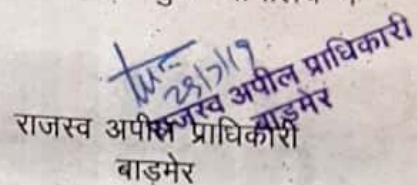 28/7/19
राजस्व अपील प्राधिकारी
बाड़मेर
राजस्व अपील प्राधिकारी
बाड़मेर